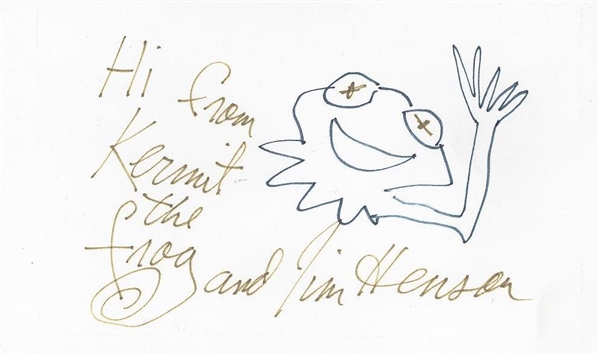 Hi from
Kermit
the
frog and Jim Henson